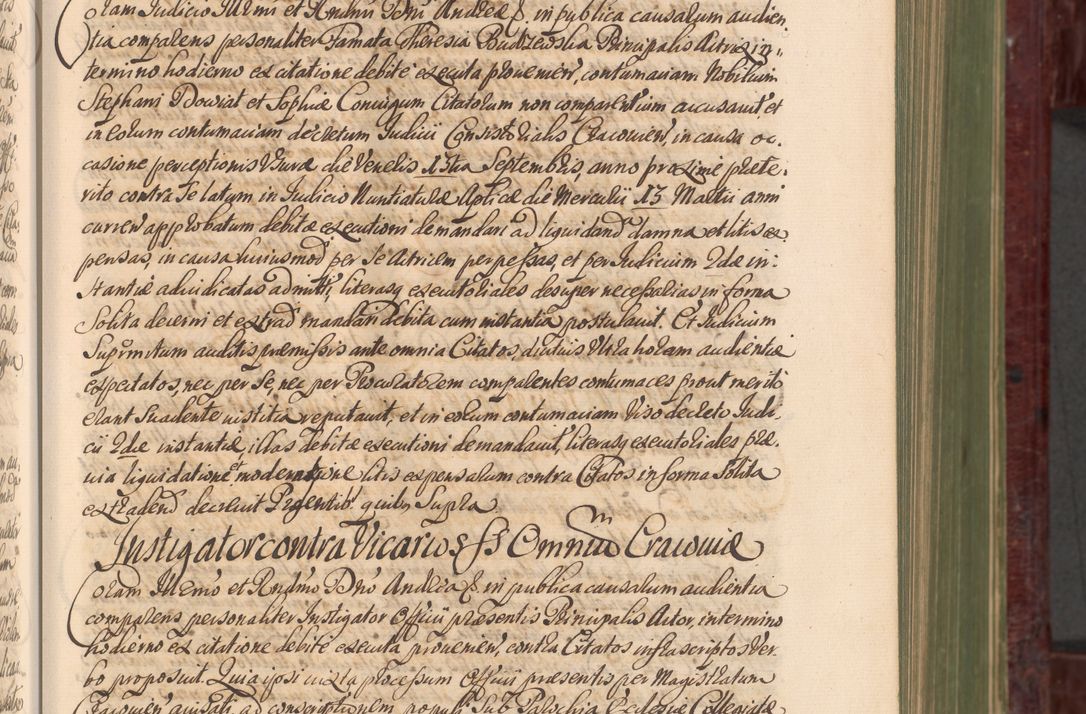 Coram Judicio Illmi et Rndmi Dni Andreæ &. in publica causarum audien
tia comparens personaliter Famata Theresia Budzewska Principalis Actrix in
termino hodierno ex citatione debite executa provenien, contumaciam Nobilium
Stephani Dowiat et Sophiæ Conjugum Citatorum non comparentium accusavit, et
in eorum contumaciam decretum Judicii Consistorialis Cracovien, in causa oc
casione perceptionis Usuræ die Veneris 15ta Septembris, anno proxime præte
rito contra Se latum in Judicio Nuntiaturæ Aplicæ die Mercurii 13 Martii anni
curren approbatum debitæ executioni demandari ad liquidand damna et litis ex
pensas, in causa huiusmod per Se Actricem perpessas, et per Judicium 2dæ in
stantiæ adiudicatas admitti, literasq executoriales desuper necessarias in forma
Solita decerni et extrad mandari debita cum instantia postulavit. Et Judicium
Suprmitum auditis præmissis ante omnia Citatos, diutius Ultra horam audientiæ
expectatos, nec per Se, nec per Procuratorem comparentes contumaces prout merito
erant Suadente iustitia reputavit, et in eorum contumaciam Viso decreto Judi
cii 2dæ instantiæ, illas debitæ executioni demandavit, literasq executoriales præ
via liquidatione et moderatione litis expensarum contra Citatos in forma Solita
extradend decrevit Præsentib. quibus Supra
Instigator contra Vicarios SS Omnium Cracoviæ
Coram Illmo et Rndmo Dno Andrea &. in publica causarum audientia
comparens personaliter Instigator Officii præsentis Principalis Actor, in termino
hodierno ex citatione debite executa provenien, contra Citatos infrascriptos Ver
bo proposuit. Quia ipsi iuxta processum Officii præsentis per Magistratum
Cracovien avisati, ad conscriptionem populi Sub Parochia Ecclesiæ Collegiatæ